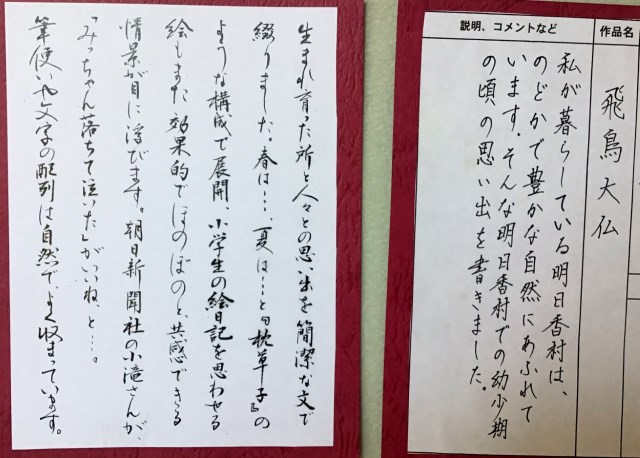 作品名
飛鳥大仏
説明、コメントなど
私が暮らしている明日香村は、
のどかで豊かな自然にあふれて
います。そんな明日香村での幼少期
の頃の思い出を書きました。
生まれ育った所と人々との思い出を簡潔な文で
綴りました。春は…、夏は…と『枕草子』の
ような構成で展開、小学生の絵日記を思わせる
絵もまた効果的でほのぼのと、共感できる
情景が目に浮びます。朝日新聞社の小滝さんが、
「みっちゃん落ちて泣いた」がいいね、と…。
筆使いや文字の配列は自然で、よく収まっています。